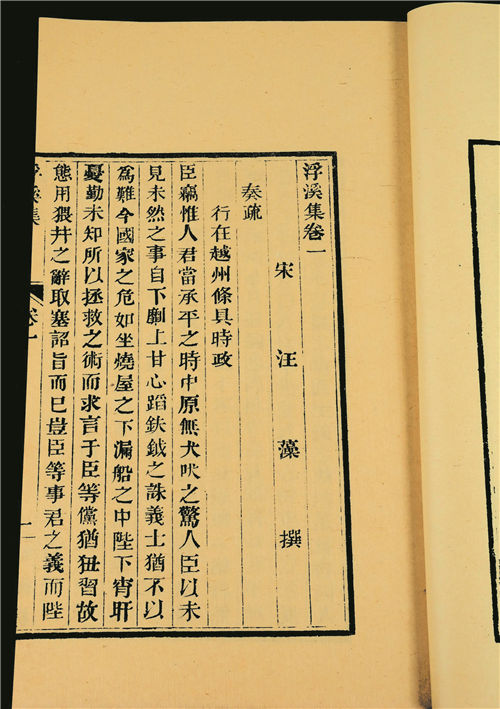 浮溪集卷一
宋 汪 藻 撰
奏疏
行在越州條具時政
臣竊惟人君當承平之時中原無犬吠之驚人臣以未
見未然之事自下劘上甘心蹈鈇鉞之誅義士猶不以
爲難今國家之危如坐燒屋之下漏船之中陛下宵旰
憂勤未知所以拯救之術而求言于臣等儻猶狃習故
態用猥井之辭取塞詔旨而已豈臣等事君之義而陛
浮溪集 卷一 一